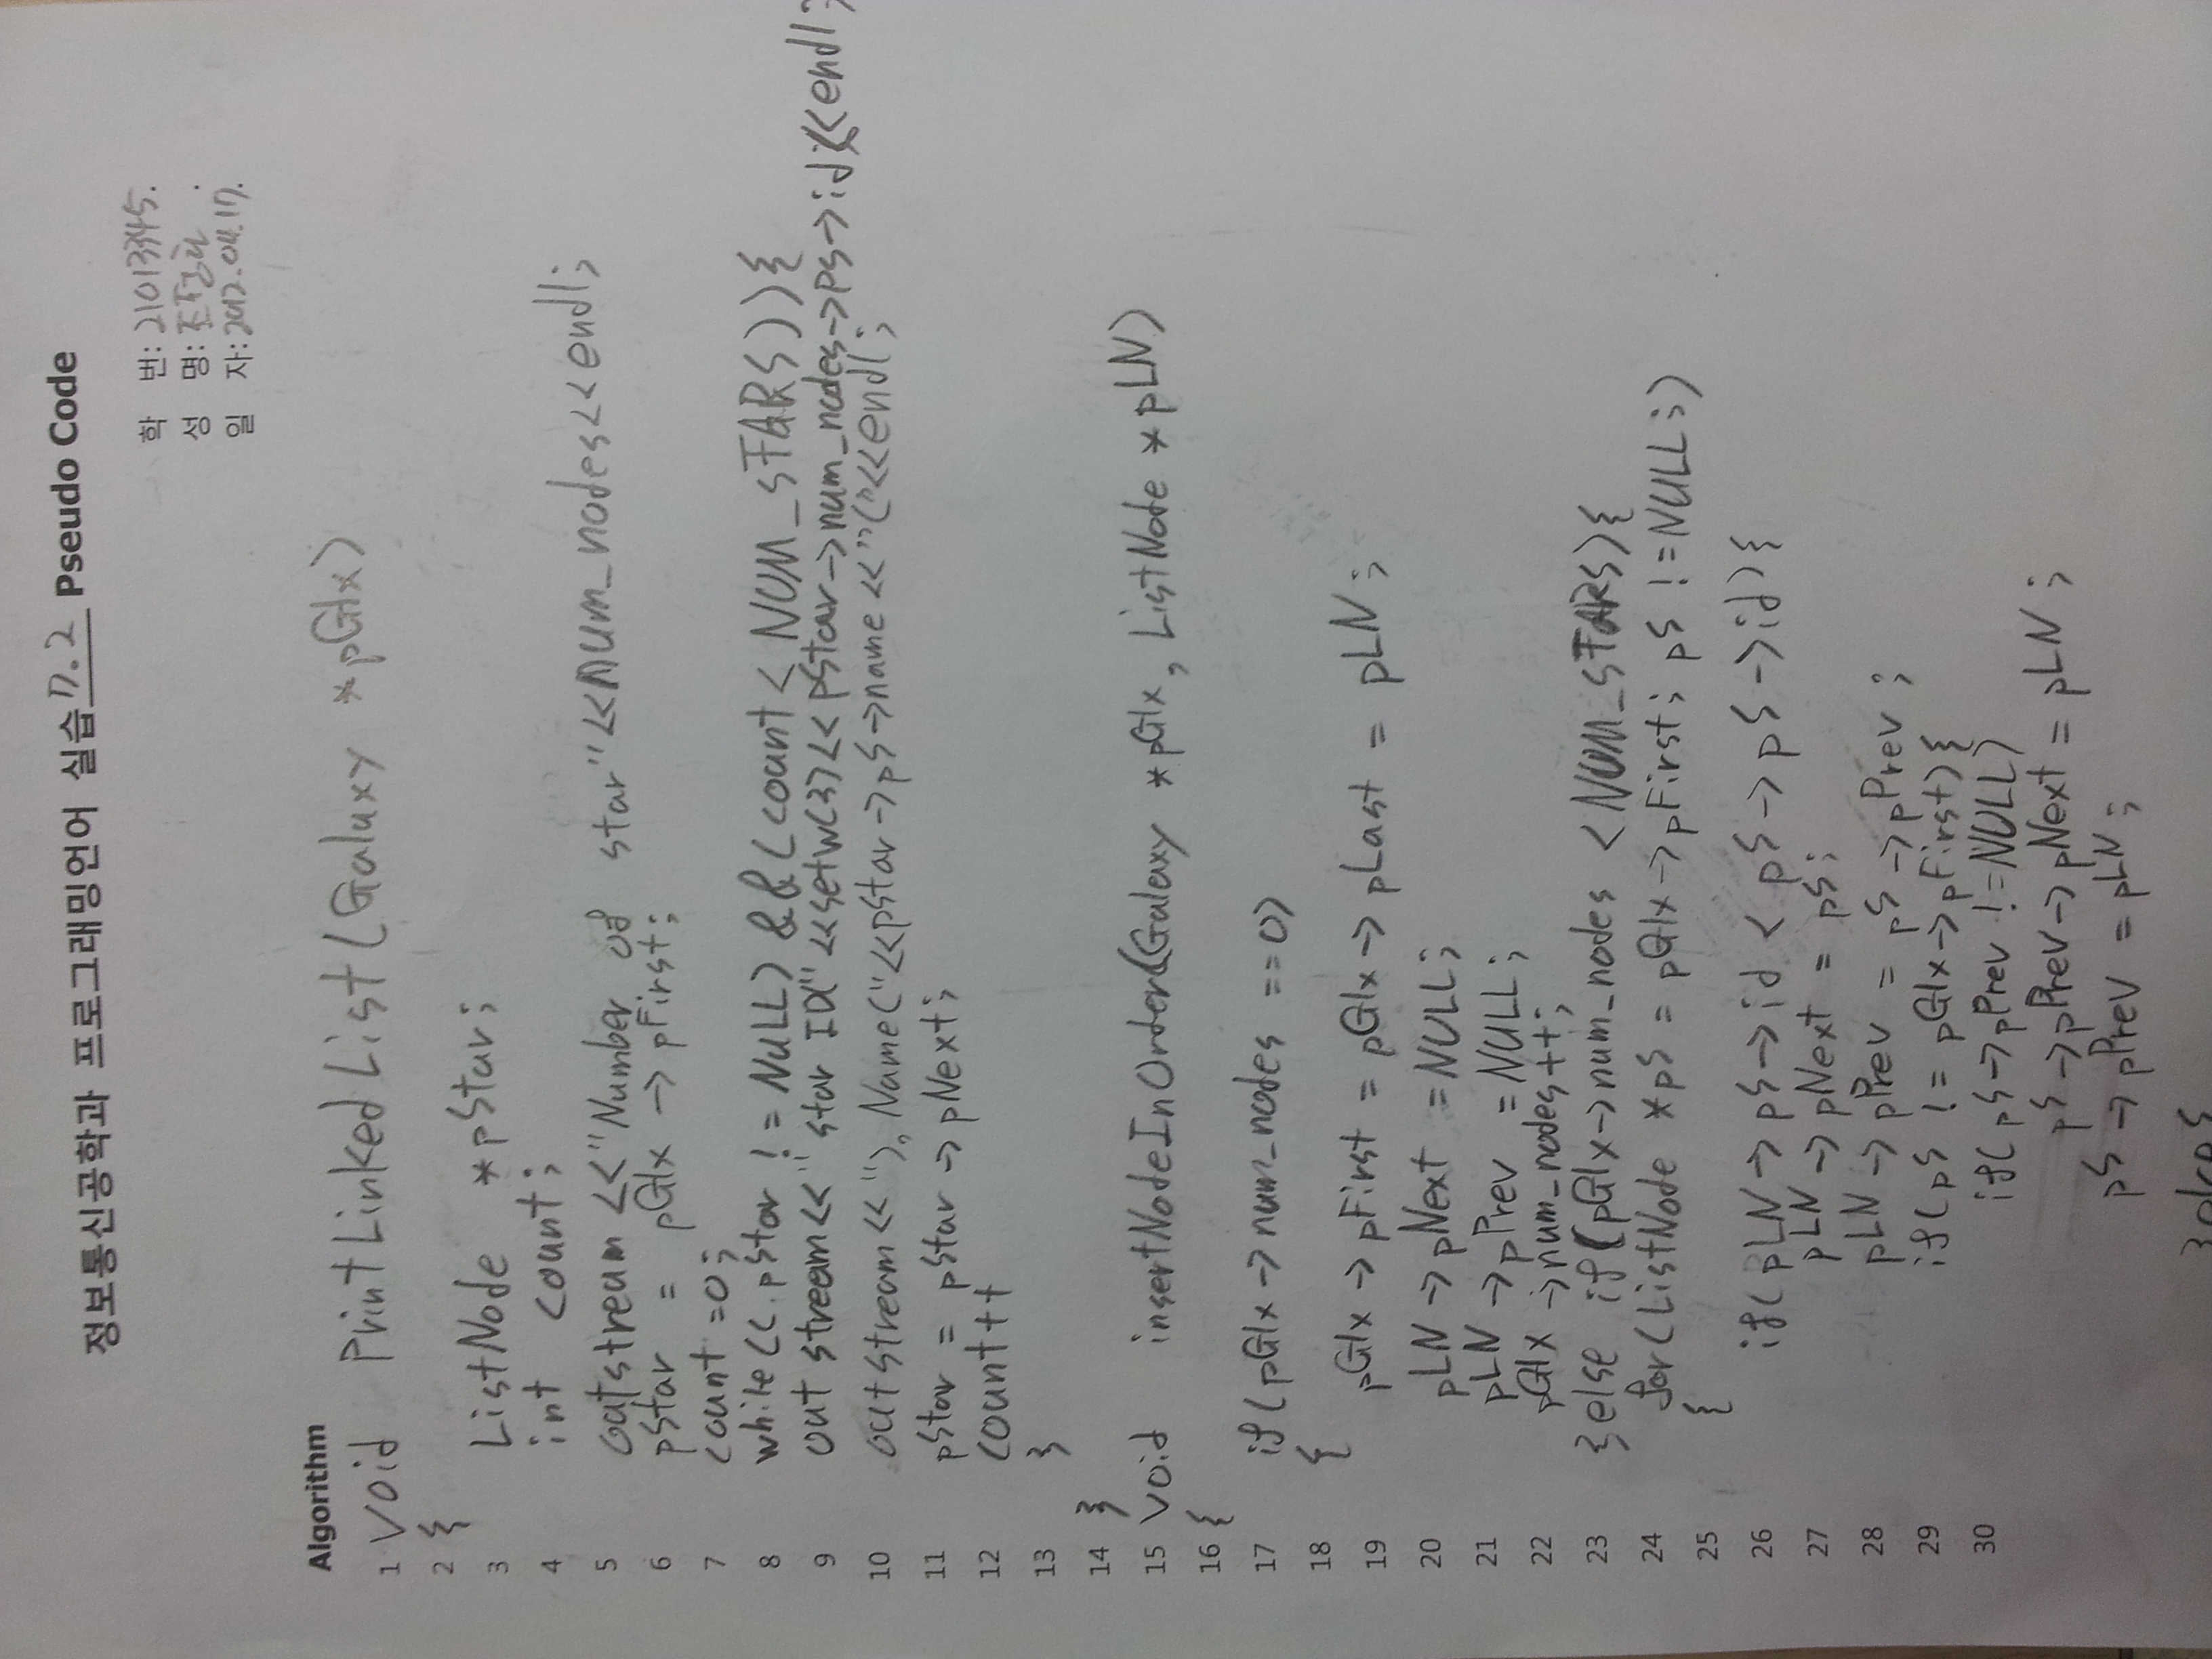 정보통신공학과 프로그래밍언어 실습 7.2 Pseudo Code
학 번: 21013345.
성 명:
일 자: 2012.04.17.
Algorithm
1 void PrintLinkedList(Galaxy *pGlx)
2 {
3 ListNode *pStar;
4 int count;
5 outstream <<"Number of star"<<num_nodes<<endl;
6 pStar = pGlx -> pFirst;
7 count =0;
8 while((pStar != NULL) && (count < NUM_STARS)){
9 outstream<<" star ID("<<setw(3)<<pStar->num_nodes->pS->id<<endl;
10 outstream<<"), Name("<<pStar->pS->name<<"("<<endl;
11 pStar = pStar -> pNext;
12 count++
13 }
14 }
15 void insertNodeInOrder(Galaxy *pGlx, ListNode *pLN)
16 {
17 if(pGlx->num_nodes ==0)
18 {
19 pGlx -> pFirst = pGlx -> pLast = pLN;
20 pLN -> pNext = NULL;
21 pLN -> pPrev = NULL;
22 pGlx ->num_nodes++;
23 }else if(pGlx->num_nodes <NUM_STARS){
24 for(ListNode *pS = pGlx ->pFirst; pS !=NULL;)
25 {
26 if(pLN -> pS ->id < pS -> pS ->id){
27 pLN -> pNext = pS;
28 pLN -> pPrev = pS ->pPrev;
29 if(pS != pGlx->pFirst){
30 if(pS->pPrev !=NULL)
pS ->pPrev-> pNext = pLN;
pS -> pPrev = pLN;